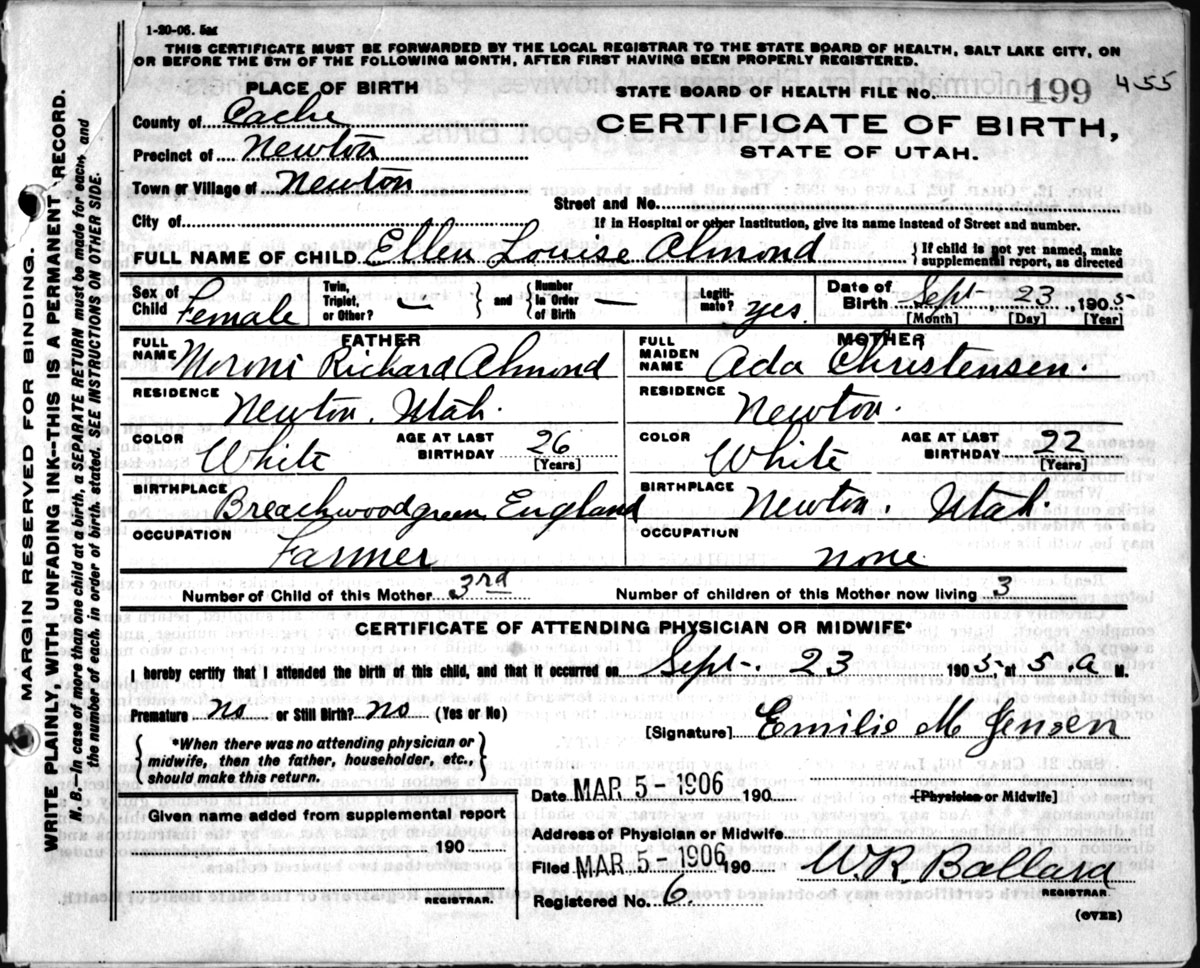 1-20-06. 5M
THIS CERTIFICATE MUST BE FORWARDED BY THE LOCAL REGISTRAR TO THE STATE BOARD OF HEALTH, SALT LAKE CITY, ON
OR BEFORE THE 5TH OF THE FOLLOWING MONTH, AFTER FIRST HAVING BEEN PROPERLY REGISTERED.
PLACE OF BIRTH
County of Cache
Precinct of Newton
Town or Village of Newton
City of
STATE BOARD OF HEALTH FILE No. 199 455
CERTIFICATE OF BIRTH,
STATE OF UTAH.
Street and No.
If in Hospital or other Institution, give its name instead of Street and number.
FULL NAME OF CHILD Ellen Louise Almond { If child is not yet named, make supplemental report, as directed
Sex of Child Female Twin, Triplet, or Other? — } and { Number in Order of Birth — Legitimate? yes. Date of Birth Sept 23 1905
[Month] [Day] [Year]
FATHER
FULL NAME Moroni Richard Almond
RESIDENCE Newton. Utah.
COLOR White AGE AT LAST BIRTHDAY 26 [Years]
BIRTHPLACE Breachwoodgreen England
OCCUPATION Farmer
MOTHER
FULL MAIDEN NAME Ada Christensen.
RESIDENCE Newton.
COLOR White AGE AT LAST BIRTHDAY 22 [Years]
BIRTHPLACE Newton. Utah.
OCCUPATION none.
Number of Child of this Mother 3rd Number of children of this Mother now living 3
CERTIFICATE OF ATTENDING PHYSICIAN OR MIDWIFE*
I hereby certify that I attended the birth of this child, and that it occurred on Sept- 23 1905, at 5 a M.
Premature no or Still Birth? no (Yes or No)
{ *When there was no attending physician or midwife, then the father, householder, etc., should make this return. }
[Signature] Emilie M Jensen
Date MAR 5-1906 190 [Physician or Midwife]
Given name added from supplemental report
190
REGISTRAR.
Address of Physician or Midwife
Filed MAR 5-1906 190 W. R. Ballard
REGISTRAR.
Registered No. 6
(OVER)
MARGIN RESERVED FOR BINDING.
WRITE PLAINLY, WITH UNFADING INK--THIS IS A PERMANENT RECORD.
N. B.—In case of more than one child at a birth, a SEPARATE RETURN must be made for each, and
the number of each, in order of birth, stated. SEE INSTRUCTIONS ON OTHER SIDE.